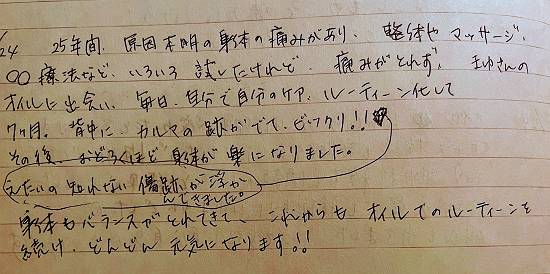 24 25年間、原因不明の身体の痛みがあり、整体やマッサージ、
〇〇療法など、いろいろ試したけれど、痛みがとれず、まゆさんの
オイルに出会い、毎日、自分で自分のケア、ルーティーン化して
7ヶ月。背中に、カルマの跡がでて、ビックリ!!
その後、おどろくほど身体が楽になりました。
えたいの知れない傷跡が浮か
んできました。
身体もバランスがとれてきて、これからもオイルでのルーティーンを
続け、どんどん元気になります!!